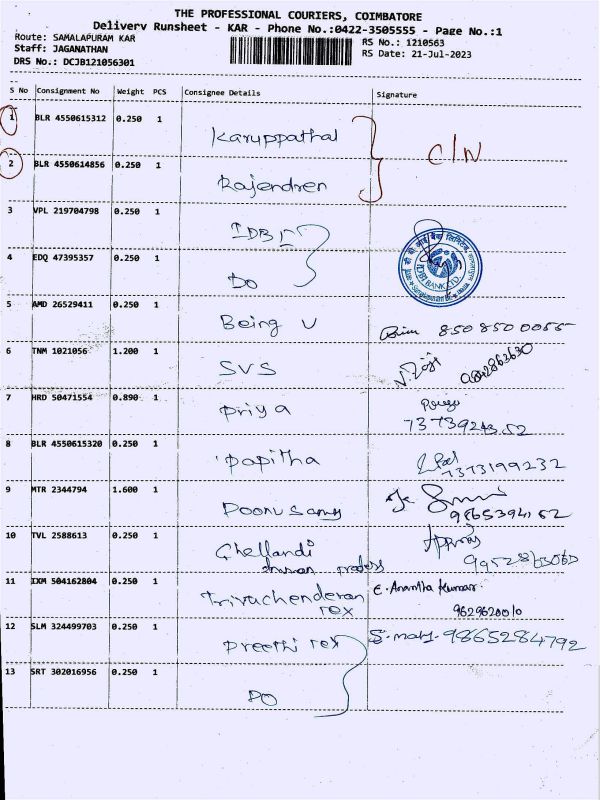 THE PROFESSIONAL COURIERS, COIMBATORE
Delivery Runsheet - KAR - Phone No.:0422-3505555 - Page No.:1
Route: SAMALAPURAM KAR RS No.: 1210563
Staff: JAGANATHAN RS Date: 21-Jul-2023
DRS No.: DCJB121056301
S No Consignment No Weight PCS Consignee Details Signature
1 BLR 4550615312 0.250 1
Karuppathal C/N
2 BLR 4550614856 0.250 1
Rajendren
3 VPL 219704798 0.250 1
IDBI
4 EDQ 47395357 0.250 1
DO
IDBI BANK LTD.
5 AMD 26529411 0.250 1
Being U 850 850 0055
6 TNM 1021056 1.200 1
SVS
7 HRD 50471554 0.890 1
Priya
8 BLR 4550615320 0.250 1
Papitha 7373199232
9 MTR 2344794 1.600 1
Poonusamy
10 TVL 2588613 0.250 1
Chellandi
11 IXM 504162804 0.250 1 E. Anantha Kumar
Trivuchenderan
Tex 9629620010
12 SLM 324499703 0.250 1
Preethi Tex 9865284792
13 SRT 302016956 0.250 1
DO